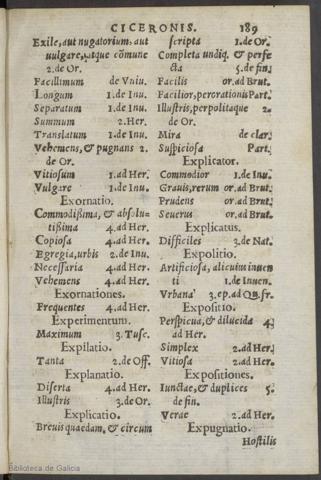 CICERONIS. 189
Exile, aut nugatorium, aut
uulgare, atque cõmune
2. de Or.
Facillimum de Vniu.
Longum 1. de Inu.
Separatum 1. de Inu.
Summum 2. Her.
Translatum 1. de Inu.
Vehemens, & pugnans 2.
de Or.
Vitiosum 1. ad Her.
Vulgare 1. de Inu.
Exornatio.
Commodißima, & absolu-
tißima 4. ad Her.
Copiosa 4. ad Her.
Egregia, urbis 2. de Inu.
Necessaria 4. ad Her.
Vehemens 4. ad Her.
Exornationes.
Frequentes 4. ad Her.
Experimentum.
Maximum 3. Tusc.
Expilatio.
Tanta 2. de Off.
Explanatio.
Diserta 4. ad Her.
Illustris 3. de Or.
Explicatio.
Breuis quaedam, & circum
scripta 1. de Or.
Completa undiq. & perfe
cta 5. de fin.
Facilis or. ad Brut.
Facilior, perorationis Part.
Illustris, perpolitaque 2.
de Or.
Mira de clar.
Suspiciosa Part.
Explicator.
Commodior 1. de Inu.
Grauis, rerum or. ad Brut.
Prudens or. ad Brut.
Seuerus or. ad Brut.
Explicatus.
Difficiles 3. de Nat.
Expolitio.
Artificiosa, alicuius inuen
ti 1. de Inuen.
Vrbana 3. ep. ad Q. fr.
Expositio.
Perspicua, & dilucida 4.
ad Her.
Simplex 2. ad Her.
Vitiosa 2. ad Her.
Expositiones.
Iunctae, & duplices 5.
de fin.
Verae 2. ad Her.
Expugnatio.
Hostilis
Biblioteca de Galicia